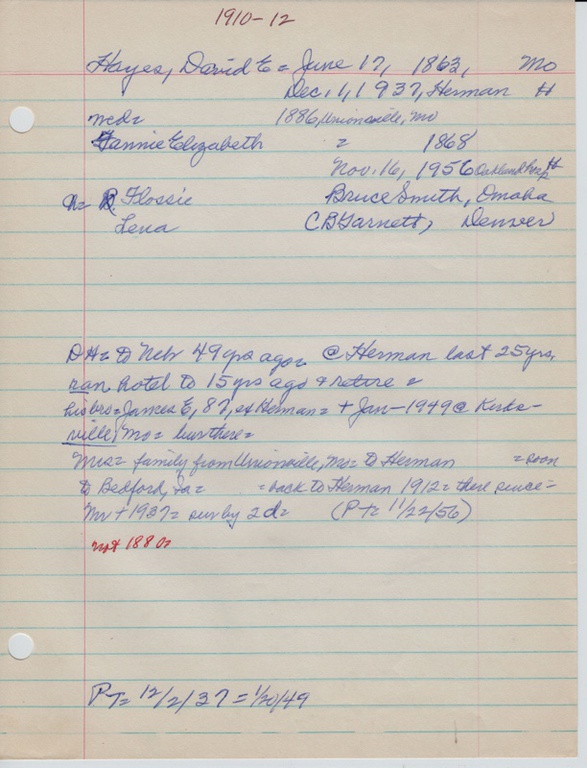 1910-12
Hayes, David E = June 17, 1863, Mo
Dec. 1, 1937, Herman H
med= 1886, Unionville, Mo
Fannie Elizabeth = 1868
Nov. 16, 1956 Oakland Hosp H
Flossie Bruce Smith, Omaha
Lena C B Garnett, Denver
DH= to Nebr 49 yrs ago= @ Herman last 25 yrs,
ran hotel to 15 yrs ago & retire =
his bro= James E, 87, ex Herman= + Jan-1949 @ Kirks-
ville, Mo= bur there=
Mrs= family from Unionville, Mo= to Herman = soon
to Bedford, Ia= =back to Herman 1912= there since=
Mr + 1937= sur by 2d= (PT= 11/22/56)
not 1880=
PT= 12/2/37 = 1/20/49